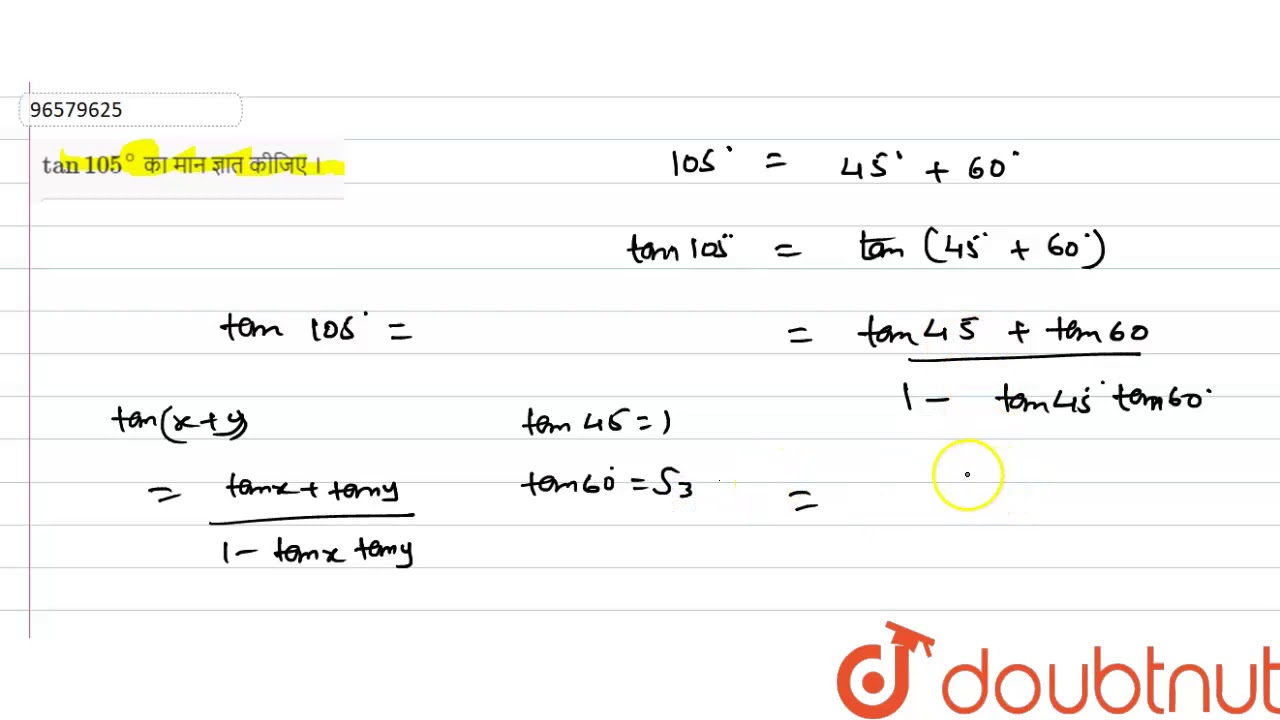 96579625
tan 105° का मान ज्ञात कीजिए ।
105° = 45° + 60°
tan 105° = tan (45° + 60°)
tan 105° =
= tan 45 + tan 60
1 - tan 45° tan 60°
tan(x+y)
= tanx + tany
1 - tanx tany
tan 45 = 1
tan 60° = √3
=
doubtnut